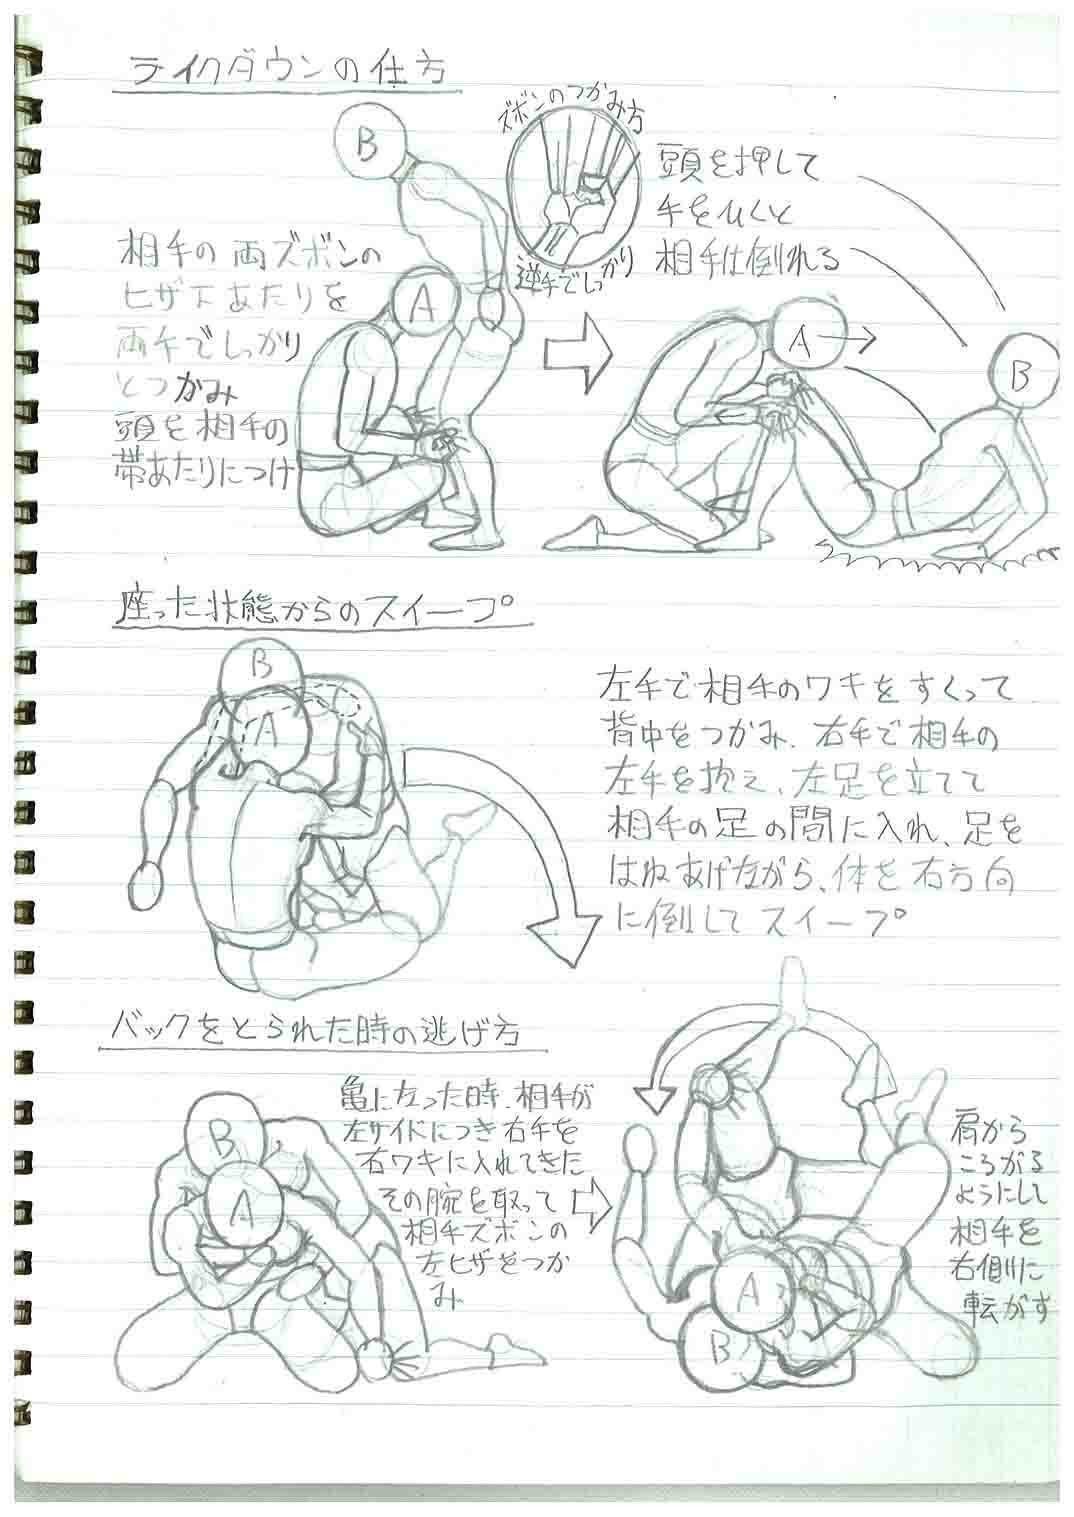 テイクダウンの仕方
B
ズボンのつかみ方
逆手でしっかり
相手の両ズボンの
ヒザ下あたりを
両手でしっかり
とつかみ
頭を相手の
帯あたりにつけ
A
頭を押して
手をひくと
相手は倒れる
A
B
座った状態からのスイープ
B
A
左手で相手のワキをすくって
背中をつかみ、右手で相手の
左手を抱え、左足を立てて
相手の足の間に入れ、足を
はねあげながら、体を右方向
に倒してスイープ
バックをとられた時の逃げ方
B
A
亀になった時、相手が
左サイドにつき右手を
右ワキに入れてきた
その腕を取って
相手ズボンの
左ヒザをつか
み
A
B
肩から
ころがる
ようにして
相手を
右側に
転がす